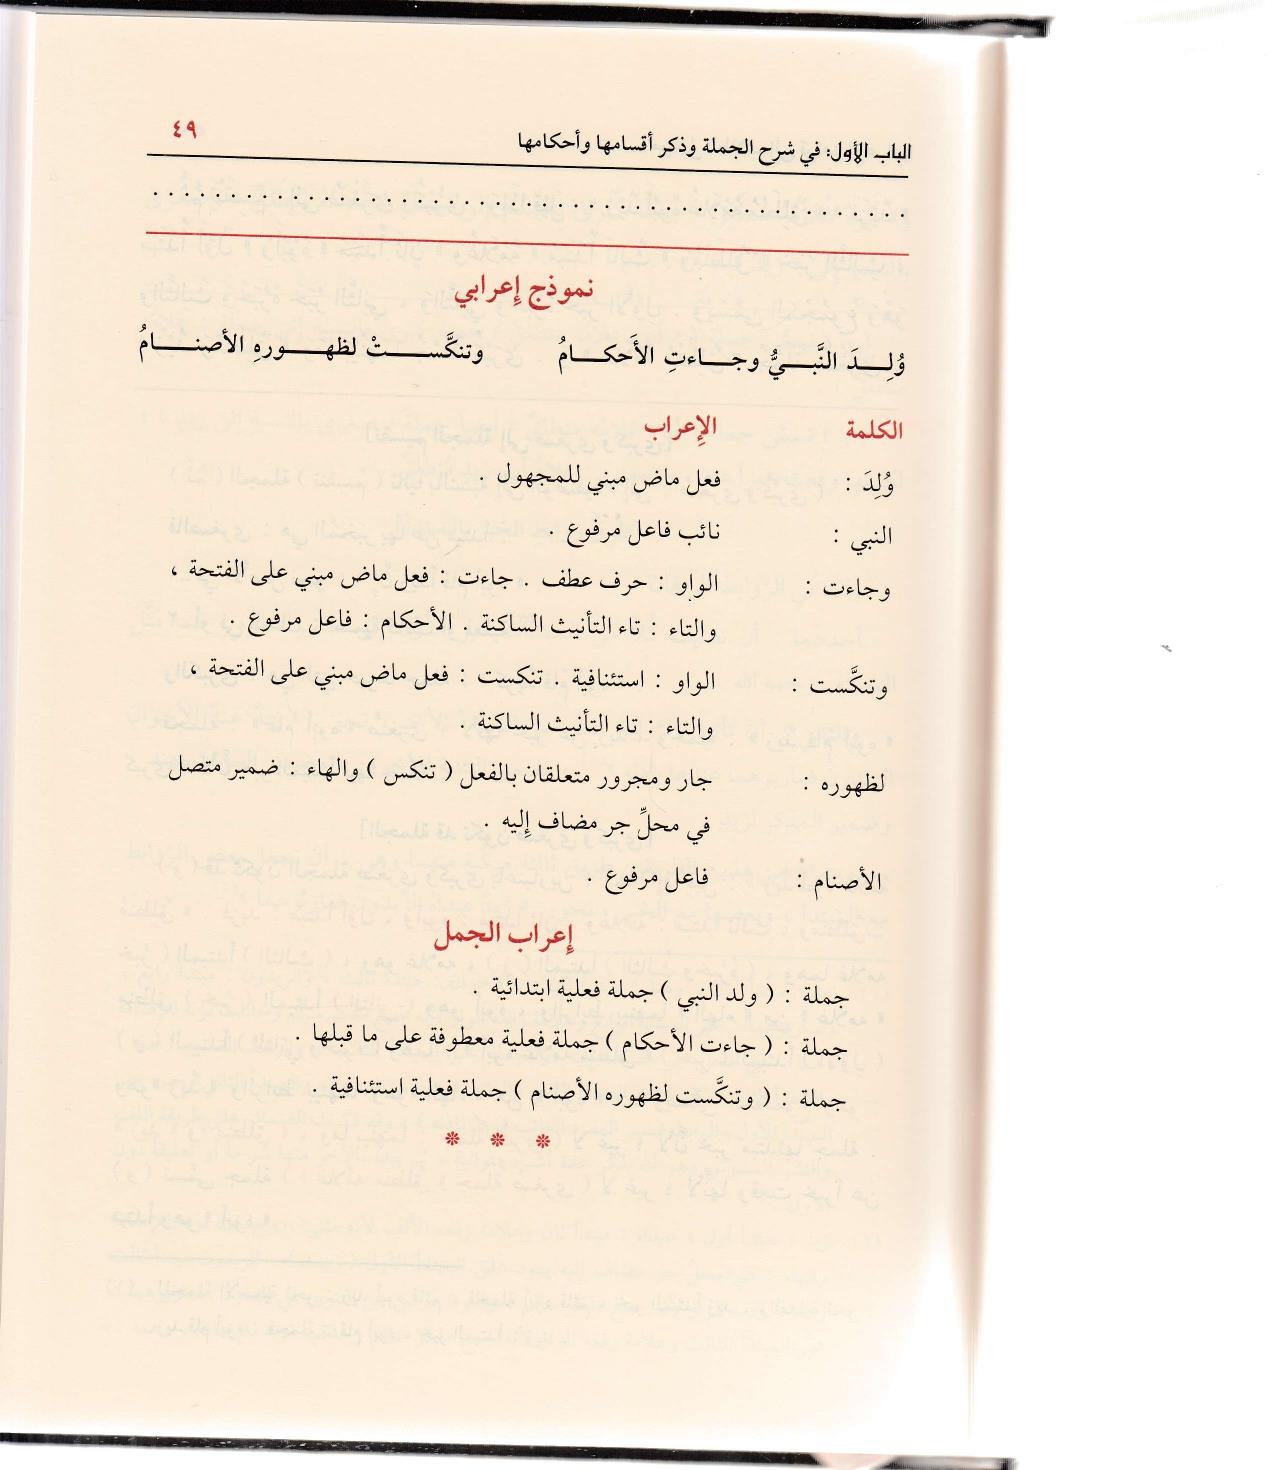 الباب الأول: في شرح الجملة وذكر أقسامها وأحكامها ٤٩
نموذج إعرابي
وُلِـــدَ النَّبـــيُّ وجـــاءتِ الأَحكـــامُ وتنكَّســـتْ لظهـــورهِ الأصنـــامُ
الكلمة الإِعراب
وُلِدَ : فعل ماض مبني للمجهول .
النبي : نائب فاعل مرفوع .
وجاءت : الواو : حرف عطف . جاءت : فعل ماض مبني على الفتحة ،
والتاء : تاء التأنيث الساكنة . الأحكام : فاعل مرفوع .
وتنكَّست : الواو : استئنافية . تنكست : فعل ماض مبني على الفتحة ،
والتاء : تاء التأنيث الساكنة .
لظهوره : جار ومجرور متعلقان بالفعل ( تنكس ) والهاء : ضمير متصل
في محلِّ جر مضاف إِليه .
الأصنام : فاعل مرفوع .
إعراب الجمل
جملة : ( ولد النبي ) جملة فعلية ابتدائية .
جملة : ( جاءت الأحكام ) جملة فعلية معطوفة على ما قبلها .
جملة : ( وتنكَّست لظهوره الأصنام ) جملة فعلية استئنافية .
* * *